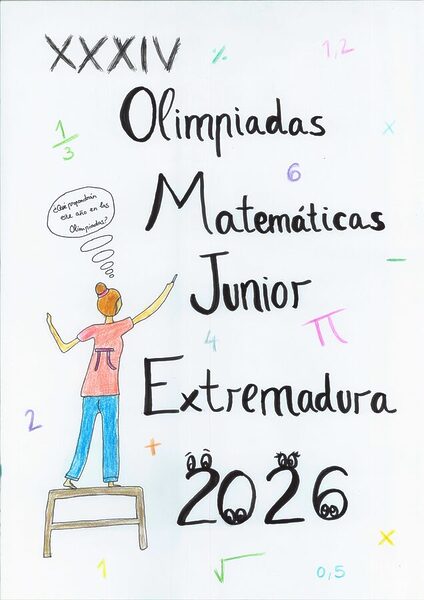 XXXIV
%
1,2
Olimpiadas
1/3
x
6
¿Qué propondrán
este año en las
Olimpiadas?
Matemáticas
-
Junior
π
4
π
Extremadura
2
+
2026
x
1
√
0,5